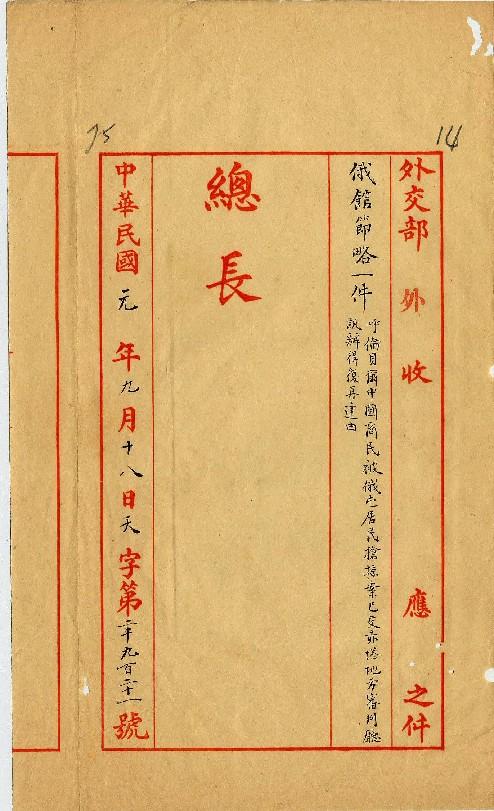 14
外交部 外收 應 之件
俄館節略一件
呼倫貝爾中國商民被俄屯居民搶掠案已交赤塔地方審判廳
訊辦得復再達由
總長
中華民國元年九月十八日天字第二千九百二十一號
75